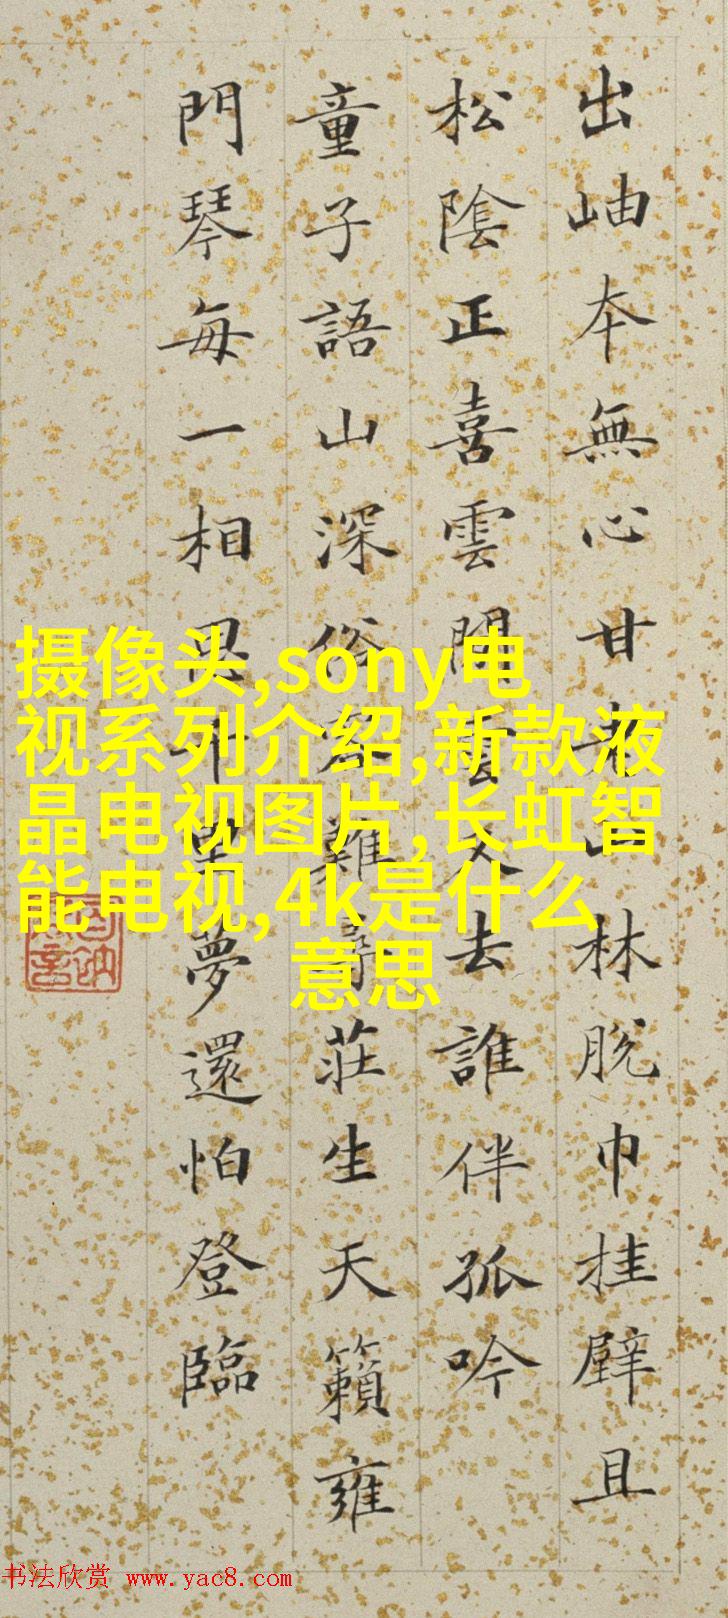 出岫本無心甘老山林脫巾挂壁且
松陰正喜雲閒雲又去誰伴孤吟
童子語山深俗客難尋莊生天籟雍
門琴每一相思千里夢還怕登臨
摄像头,sony电
视系列介绍,新款液
晶电视图片,长虹智
能电视,4k是什么
意思
书法欣赏 www.yac8.com